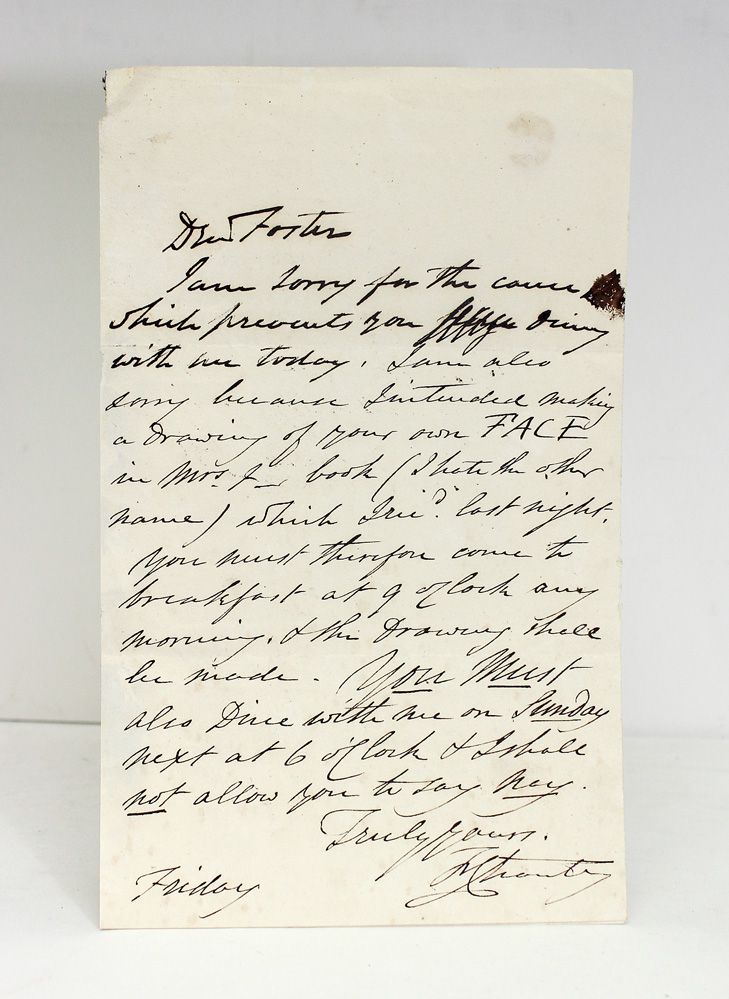 Dear Foster
I am sorry for the cause
which prevents you dining
with me today. I am also
sorry because I intended making
a drawing of your own FACE
in Mrs. F— book (I hate the other
name) which I rec.d last night.
You must therefore come to
breakfast at 9 o'Clock any
morning, & the Drawing shall
be made. You Must
also Dine with me on Sunday
next at 6 o'Clock & I shall
not allow you to say Nay.
Truly yours.
F Chantrey
Friday